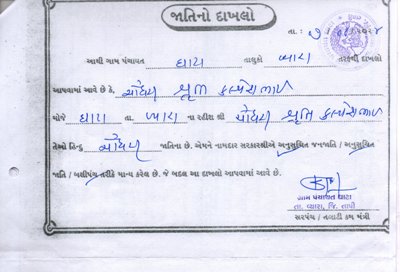 જાતિનો દાખલો
તા. :
આથી ગ્રામ પંચાયત ઘાટા તાલુકો વ્યારા તરફથી દાખલો
આપવામાં આવે છે કે, ચૌધરી
મોજે ઘાટા તા. વ્યારા ના રહીશ શ્રી ચૌધરી
તેઓ હિન્દુ ચૌધરી જાતિના છે. એમને નામદાર સરકારશ્રીએ અનુસુચિત જનજાતિ / અનુસુચિત
જાતિ / બક્ષીપંચ તરીકે માન્ય કરેલ છે. જે બદલ આ દાખલો આપવામાં આવે છે.
ગ્રામ પંચાયત ઘાટા
તા. વ્યારા, જિ. તાપી
સરપંચ / તલાટી કમ મંત્રી